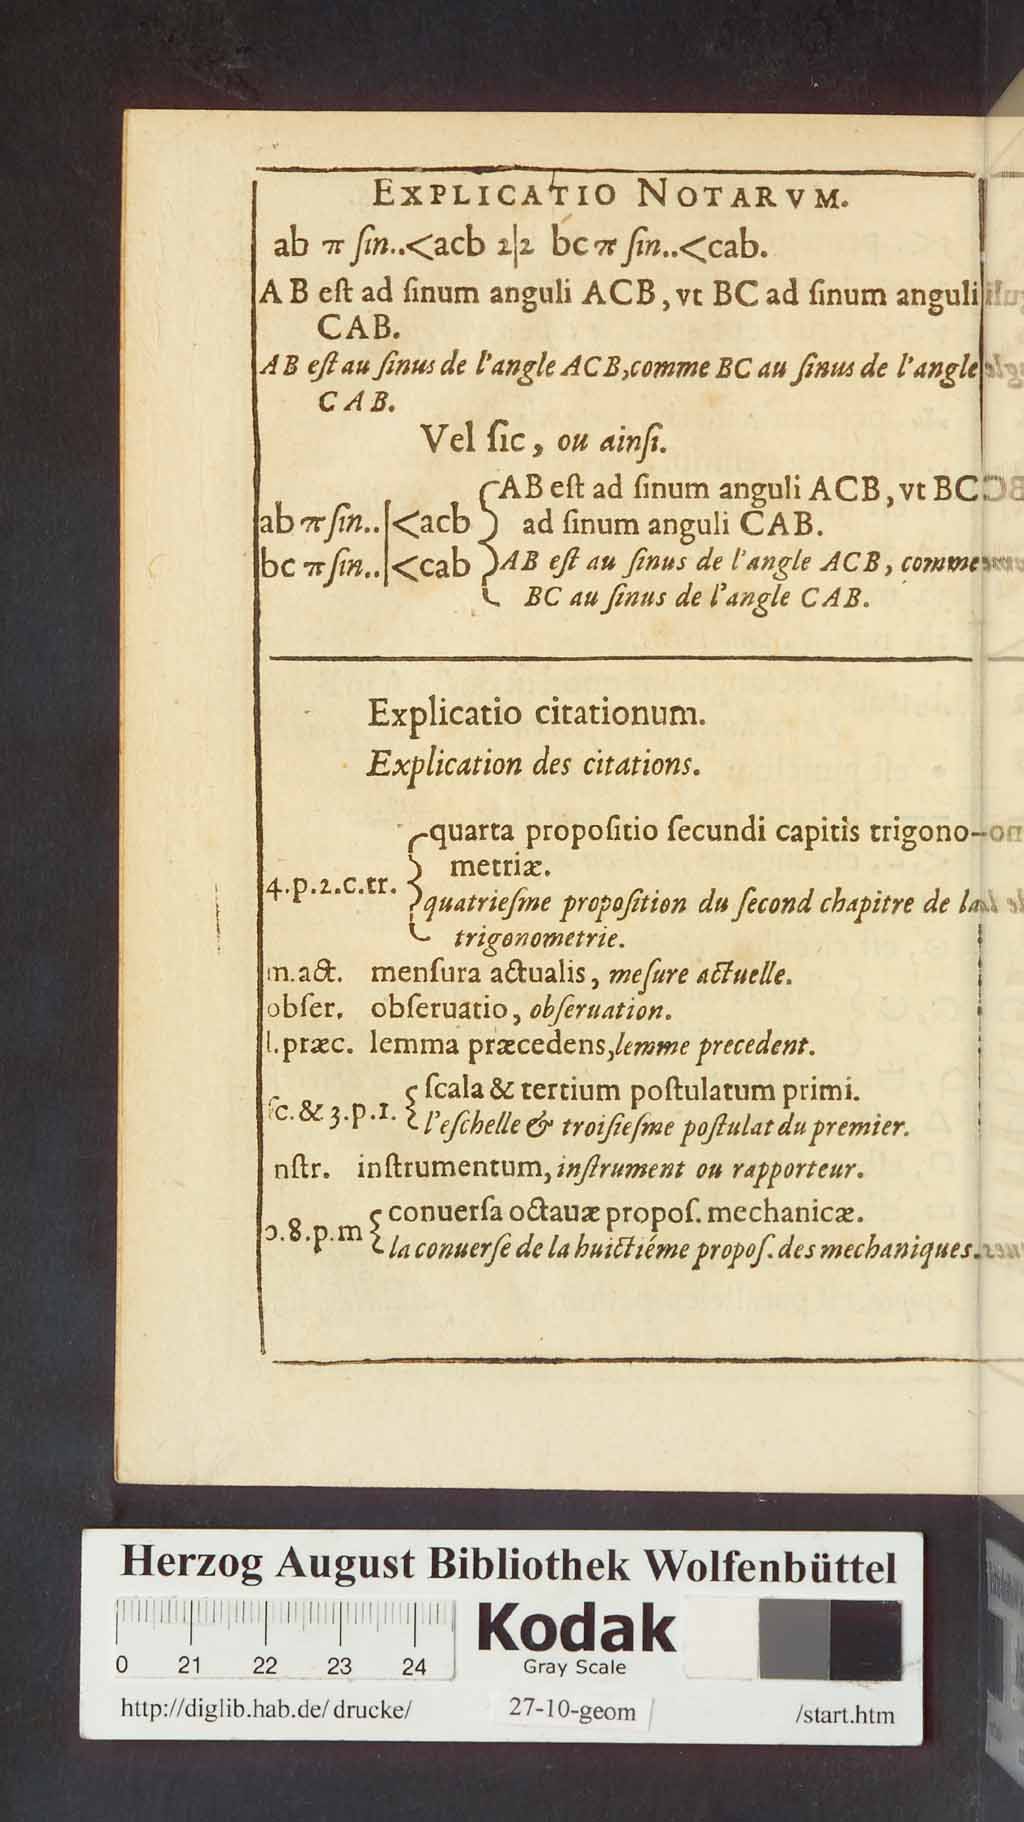 EXPLICATIO NOTARVM.
ab π ſin..<acb 2|2 bc π ſin..<cab.
AB eſt ad ſinum anguli ACB, vt BC ad ſinum anguli
CAB.
AB eſt au ſinus de l'angle ACB, comme BC au ſinus de l'angle
CAB.
Vel ſic, ou ainſi.
AB eſt ad ſinum anguli ACB, vt BC
ab π ſin..|<acb
ad ſinum anguli CAB.
bc π ſin..|<cab
AB eſt au ſinus de l'angle ACB, comme
BC au ſinus de l'angle CAB.
Explicatio citationum.
Explication des citations.
quarta propoſitio ſecundi capitis trigono-
metriæ.
4.p.2.c.tr.
quatrieſme propoſition du ſecond chapitre de la
trigonometrie.
m.act. menſura actualis, meſure actuelle.
obſer. obſeruatio, obſeruation.
l.præc. lemma præcedens, lemme precedent.
ſcala & tertium poſtulatum primi.
ſc.&3.p.1.
l'eſchelle & troiſieſme poſtulat du premier.
nſtr. inſtrumentum, inſtrument ou rapporteur.
conuerſa octauæ propoſ. mechanicæ.
ɔ.8.p.m
la conuerſe de la huictiéme propoſ. des mechaniques.
Herzog August Bibliothek Wolfenbüttel
Kodak
Gray Scale
0 21 22 23 24
http://diglib.hab.de/drucke/ 27-10-geom /start.htm